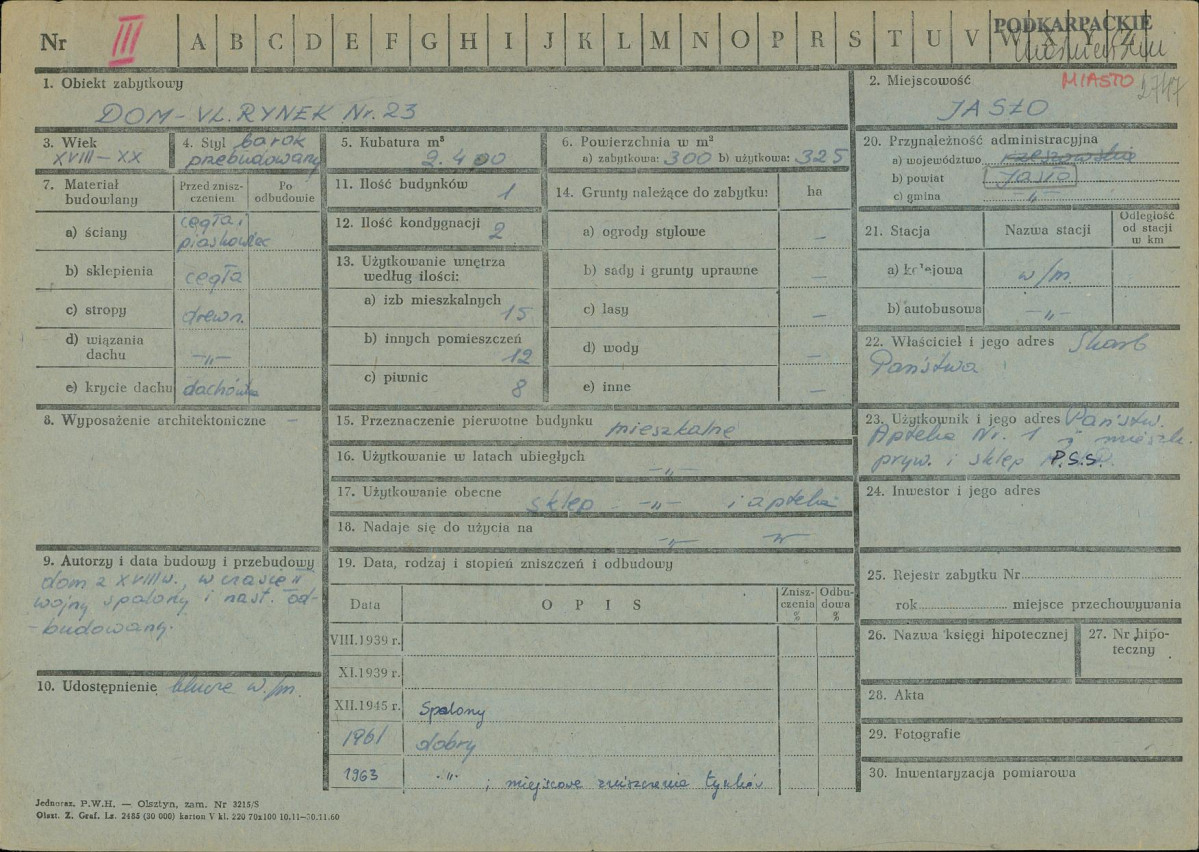 Nr III A B C D E F G H I J K L M N O P R S T U V W X Y Z
PODKARPACKIE
1. Obiekt zabytkowy
DOM - UL. RYNEK Nr. 23
2. Miejscowość MIASTO 2747
JASŁO
3. Wiek
XVIII – XX
4. Styl barok
przebudowany
5. Kubatura m³
2.400
6. Powierzchnia w m²
a) zabytkowa: 300 b) użytkowa: 325
20. Przynależność administracyjna
a) województwo rzeszowskie
b) powiat Jasło
c) gmina —„—
7. Materiał budowlany
Przed znisz-
czeniem
Po
odbudowie
a) ściany cegła i
piaskowiec
b) sklepienia cegła
c) stropy drewn.
d) wiązania
dachu —„—
e) krycie dachu dachówka
11. Ilość budynków 1
12. Ilość kondygnacji 2
13. Użytkowanie wnętrza
według ilości:
a) izb mieszkalnych 15
b) innych pomieszczeń 12
c) piwnic 8
14. Grunty należące do zabytku: ha
a) ogrody stylowe —
b) sady i grunty uprawne —
c) lasy —
d) wody —
e) inne —
21. Stacja Nazwa stacji
Odległość
od stacji
w km
a) kolejowa w/m.
b) autobusowa —„—
22. Właściciel i jego adres Skarb
Państwa
8. Wyposażenie architektoniczne —
15. Przeznaczenie pierwotne budynku mieszkalne
16. Użytkowanie w latach ubiegłych —„—
17. Użytkowanie obecne sklep —„— i apteka
18. Nadaje się do użycia na —„— —„—
23. Użytkownik i jego adres Państw.
Apteka Nr. 1 i mieszk.
pryw. i sklep P.S.S.
24. Inwestor i jego adres
9. Autorzy i data budowy i przebudowy
dom z XVIII w., w czasie II
wojny spalony i nast. od-
-budowany.
10. Udostępnienie klucze w./m.
19. Data, rodzaj i stopień zniszczeń i odbudowy
Data OPIS
Znisz-
czenia
%
Odbu-
dowa
%
VIII.1939 r.
XI.1939 r.
XII.1945 r. Spalony
1961 dobry
1963 —„— i miejscowe zniszczenia tynków
25. Rejestr zabytku Nr
rok miejsce przechowywania
26. Nazwa księgi hipotecznej
27. Nr hipo-
teczny
28. Akta
29. Fotografie
30. Inwentaryzacja pomiarowa
Jednoraz. P.W.H. — Olsztyn, zam. Nr 3215/S
Olszt. Z. Graf. Lz. 2485 (30 000) karton V kl. 220 70x100 10.11—30.11.60